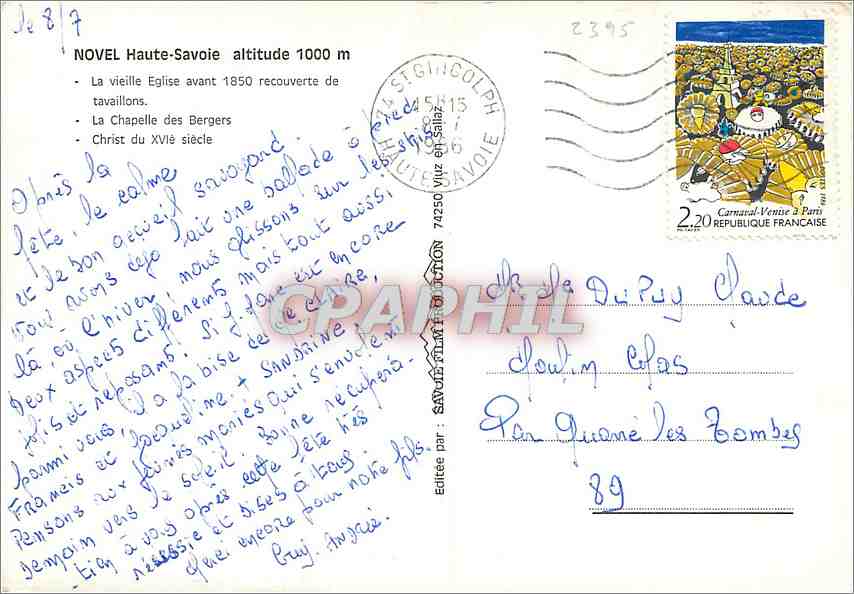 le 8/7
2395
NOVEL Haute-Savoie altitude 1000 m
- La vieille Eglise avant 1850 recouverte de
tavaillons.
- La Chapelle des Bergers
- Christ du XVIè siècle
Après la
fête, le calme
et le bon accueil savoyard.
Nous avons déjà fait une ballade à pied
là, où l'hiver, nous glissons sur les skis
Deux aspects différents mais tout aussi
jolis et reposants. Si J. Paul est encore
parmi vous, il a la bise de le chère,
Francis et Jacqueline. + SANDRINE!
Pensons aux jeunes mariés qui s'envolent
demain vers le soleil. Bonne récupéra-
tion à vous après cette fête très
réussie et bises à tous.
Merci encore pour notre fils.
Guy. Andrée
74 ST GINGOLPH
15H15
8-7
1986
HAUTE-SAVOIE
Carnaval-Venise à Paris
2,20 REPUBLIQUE FRANÇAISE
Editée par : SAVOIE FILM PRODUCTION 74250 Viuz en Sallaz
CPAPHIL
DUPUY Claude
Moulin Colas
Par Quarré les Tombes
89